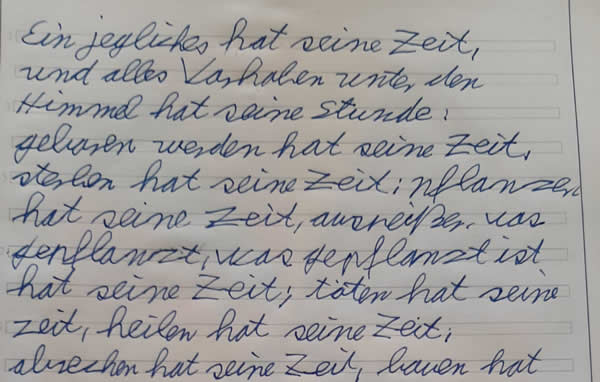 Ein jegliches hat seine Zeit,
und alles Vorhaben unter den
Himmel hat seine Stunde:
geboren werden hat seine Zeit,
sterben hat seine Zeit; pflanzen
hat seine Zeit, ausreißen was
gepflanzt, was gepflanzt ist
hat seine Zeit; töten hat seine
zeit, heilen hat seine Zeit;
abrechen hat seine Zeit, bauen hat